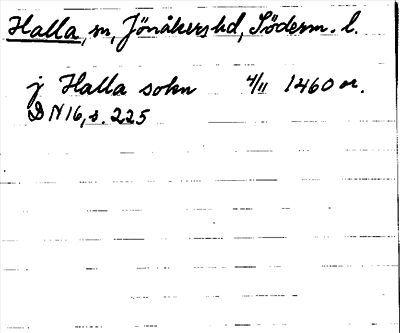 Halla, sn, Jönåkers hd, Söderm. l.
j Halla sokn 4/11 1460 or.
D N 16, s. 225